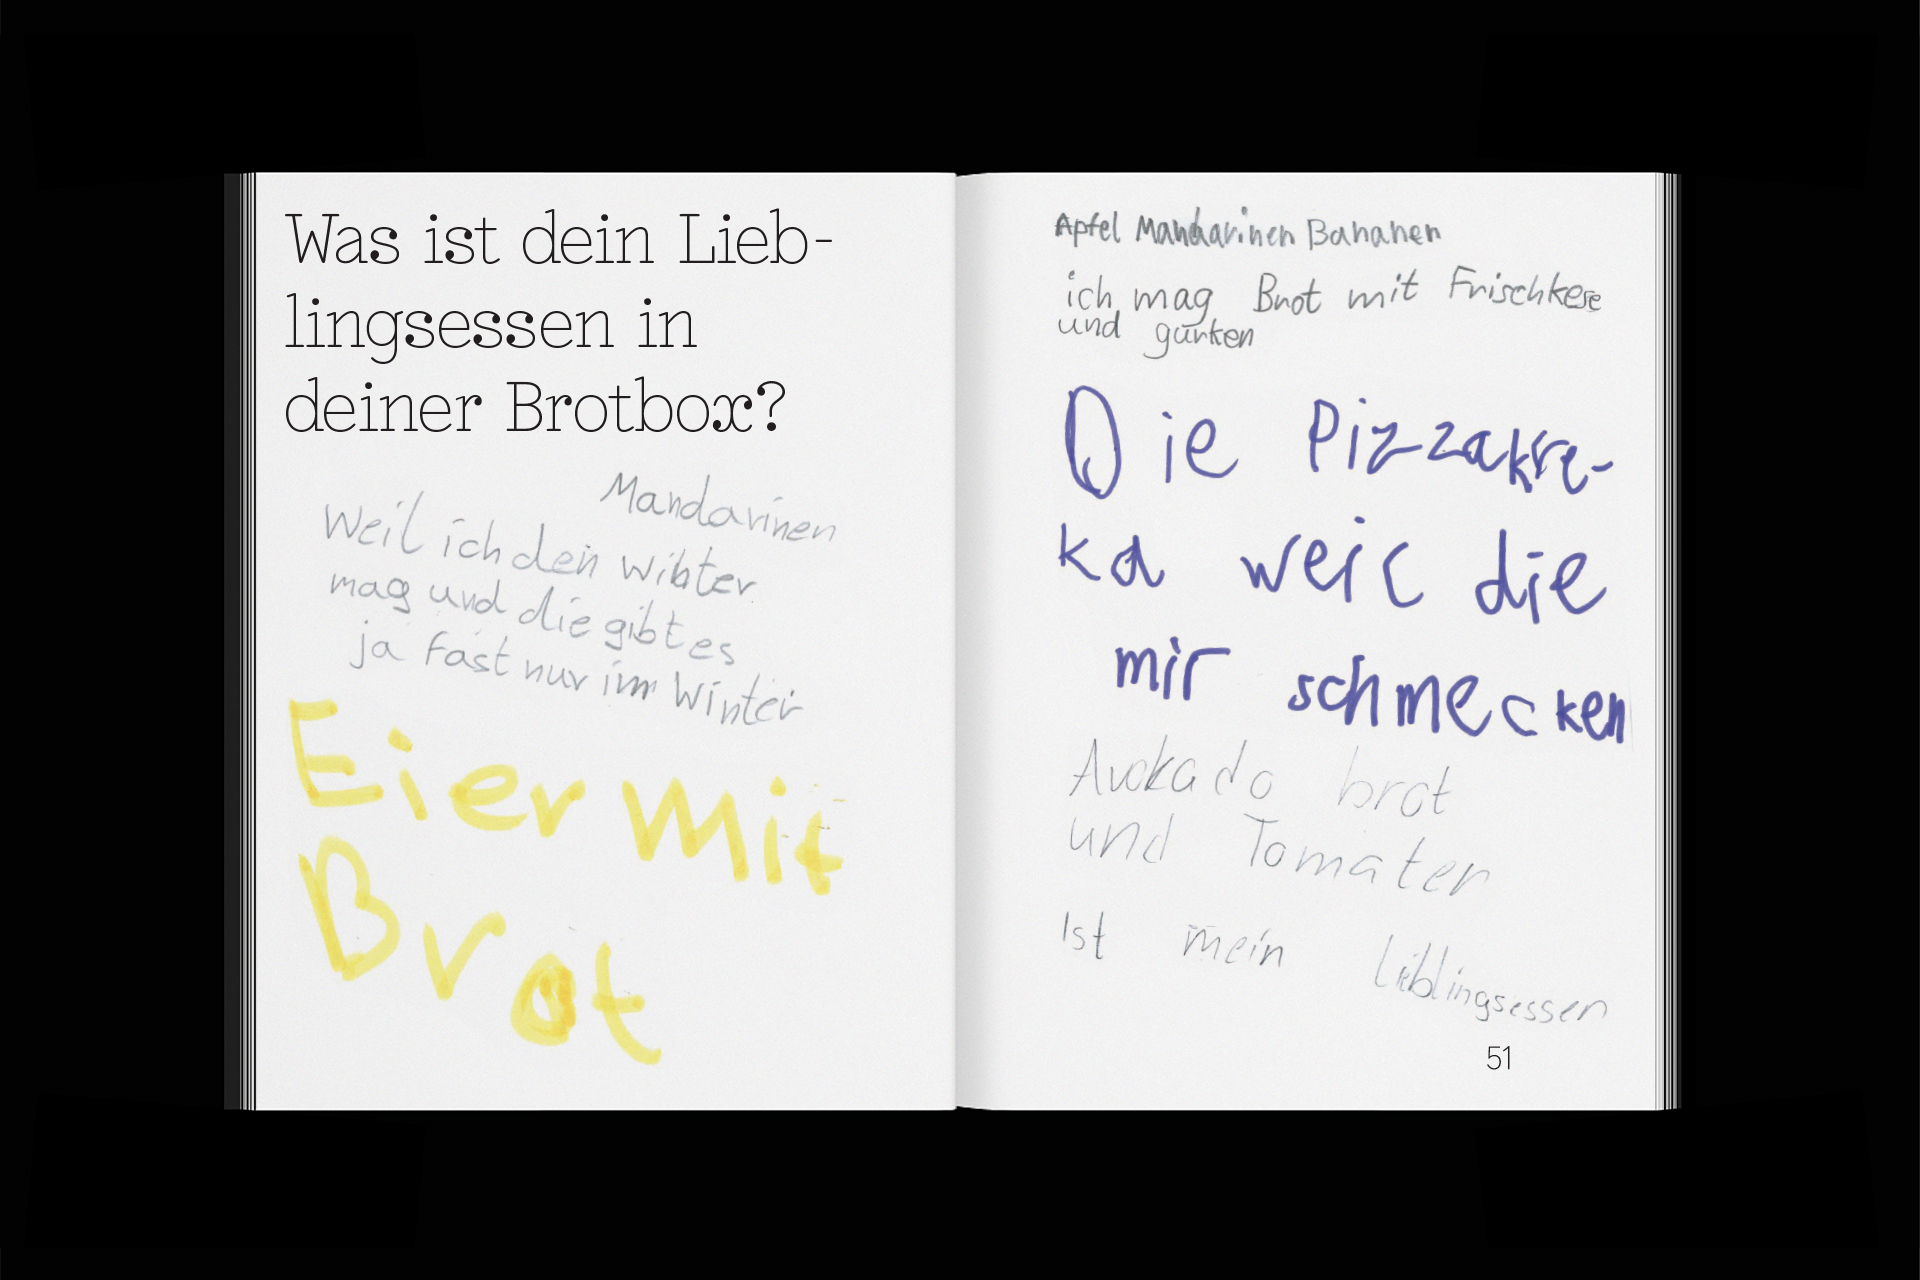 Was ist dein Lieb-
lingsessen in
deiner Brotbox?
Mandarinen
Weil ich den winter
mag und die gibt es
ja fast nur im Winter
Eier Mit
Brot
Apfel Mandarinen Bananen
ich mag Brot mit Frischkese
und gurken
Die Pizzakre-
ka weil die
mir schmecken
Avokado brot
und Tomaten
Ist mein lieblingsessen
51